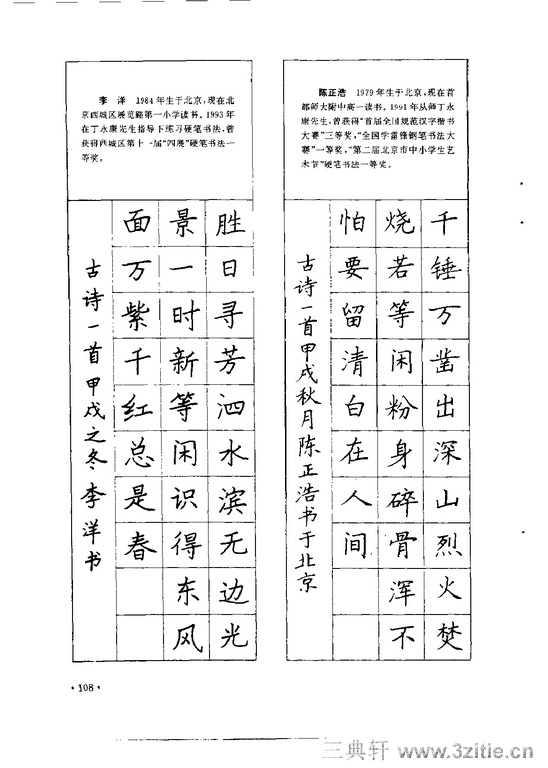 李 洋 1984年生于北京，现在北
京西城区展览路第一小学读书。1993年
在丁永康先生指导下练习硬笔书法，曾
获得西城区第十一届“四展”硬笔书法一
等奖。
陈正浩 1979年生于北京，现在首
都师大附中高一读书。1991年从师丁永
康先生，曾获得“首届全国规范汉字楷书
大赛”三等奖，“全国学雷锋钢笔书法大
赛”一等奖，“第二届北京市中小学生艺
术节”硬笔书法一等奖。
千锤万凿出深山烈火焚
烧若等闲粉身碎骨浑不
怕要留清白在人间
古诗一首甲戌秋月陈正浩书于北京
胜日寻芳泗水滨无边光
景一时新等闲识得东风
面万紫千红总是春
古诗一首甲戌之冬李洋书
·108·
三典轩 www.3zitie.cn